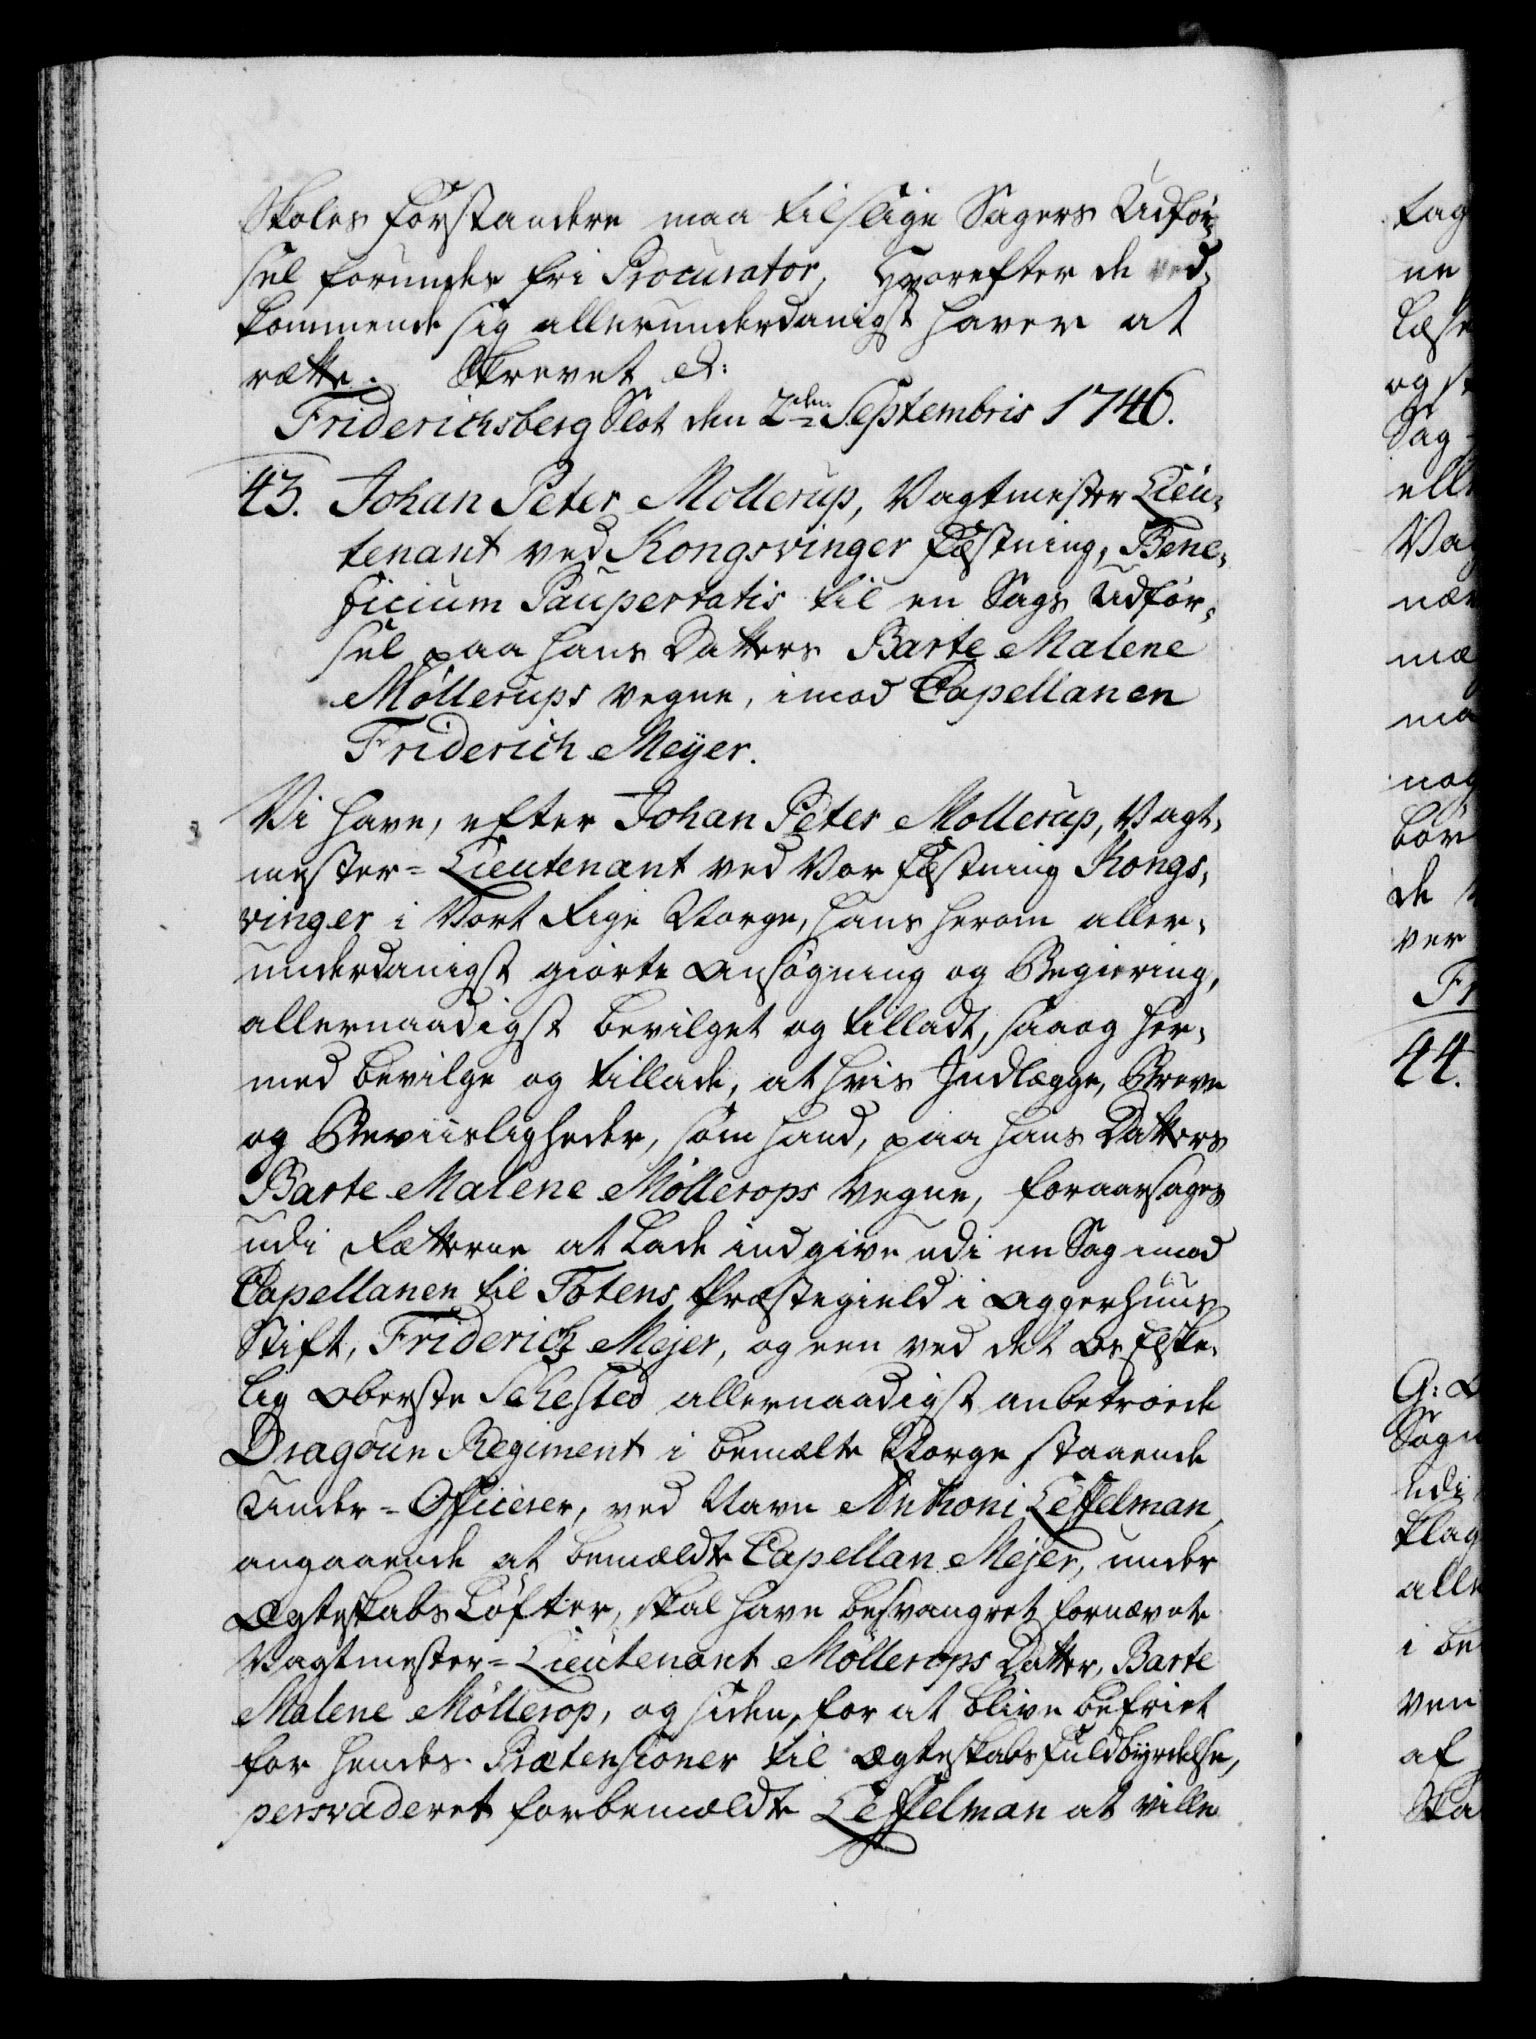 Skoles Forstandere maa til slige Sagers Udför¬
sel forundes fri Procurator, Hvorefter de ved¬
kommende sig allerunderdanigst haver at
rætte. Skrevet &:
Friderichsberg Slot den 2den Septembris 1746.
43. Johan Peter Mollerup, Vagtmester Lieu¬
tenant ved Kongsvinger Fæstning, Bene¬
ficium Paupertatis til en Sags Udför¬
sel paa hans Datters Barte Malene
Möllerups vegne, imod Capellanen
Friderich Meyer.
Vi have, efter Johan Peter Mollerup, Vagt¬
mester-Lieutenant ved Vor Fæstning Kongs¬
vinger i Vort Rige Norge, hans herom aller¬
underdanigst giorte Ansögning og Begiering,
allernaadigst bevilget og tilladt, saa og her¬
med bevilge og tillade, at hvis Indlægge, Breve
og Beviisligheder, som hand, paa hans Datters
Barte Malene Möllerops vegne, foraarsages
udi Rætterne at lade indgive udi en Sag imod
Capellanen til Totens Præstegield i Aggerhuus
Stift, Friderich Mejer, og een ved det Os Elske¬
lig Oberste Sehested allernaadigst anbetroede
Dragoun Regiment i bemelte Norge staaende
Under-Officerer, ved Navn Anthoni Leffelman,
angaaende at bemældte Capellan Mejer, under
Ægteskabs Löfter, skal have besvangret fornævnte
Vagtmester-Lieutenant Möllerops Datter, Barte
Malene Möllerop, og siden, for at blive befriet
for hendes Prætensioner til Ægteskabs Fuldbyrdelse,
persvaderet forbemældte Leffelman at ville
tag
ne
Læse
og
Sag
elle
Vag
næ
mæ
ma
nog
bör
de
ver
Fr
44.
G:
Sogn
udi
Klag
alle
i be
ven
af
Ska